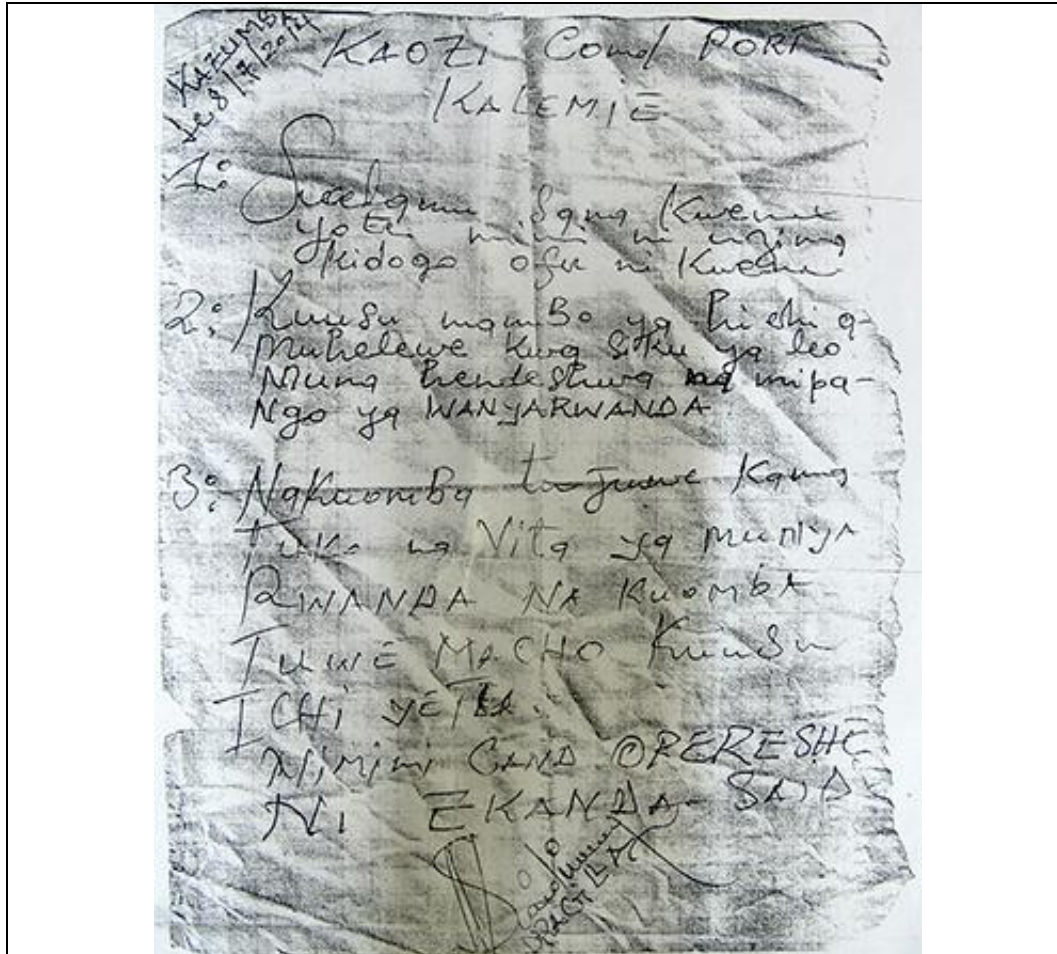 KAZUMBA
le 8/7/2014
KAOZI Comd PORT
KALEMIE
1: Salamu Sana Kwenu
yote mimi ni mzima
kidogo ofu ni Kwenu
2: Kuusu mambo ya hi chi a-
Muhelewe kwa siku ya leo
Muna hendeshwa na mipa-
Ngo ya WANYARWANDA
3: NaKuomBa tujuwe Kama
Tuko na Vita ya MuNYA
RWANDA NA KuombA
TuWE MACHO Kuusu
ICHi yETu.
Mimimi CAND OPERESHE
Ni EKANDA SAID